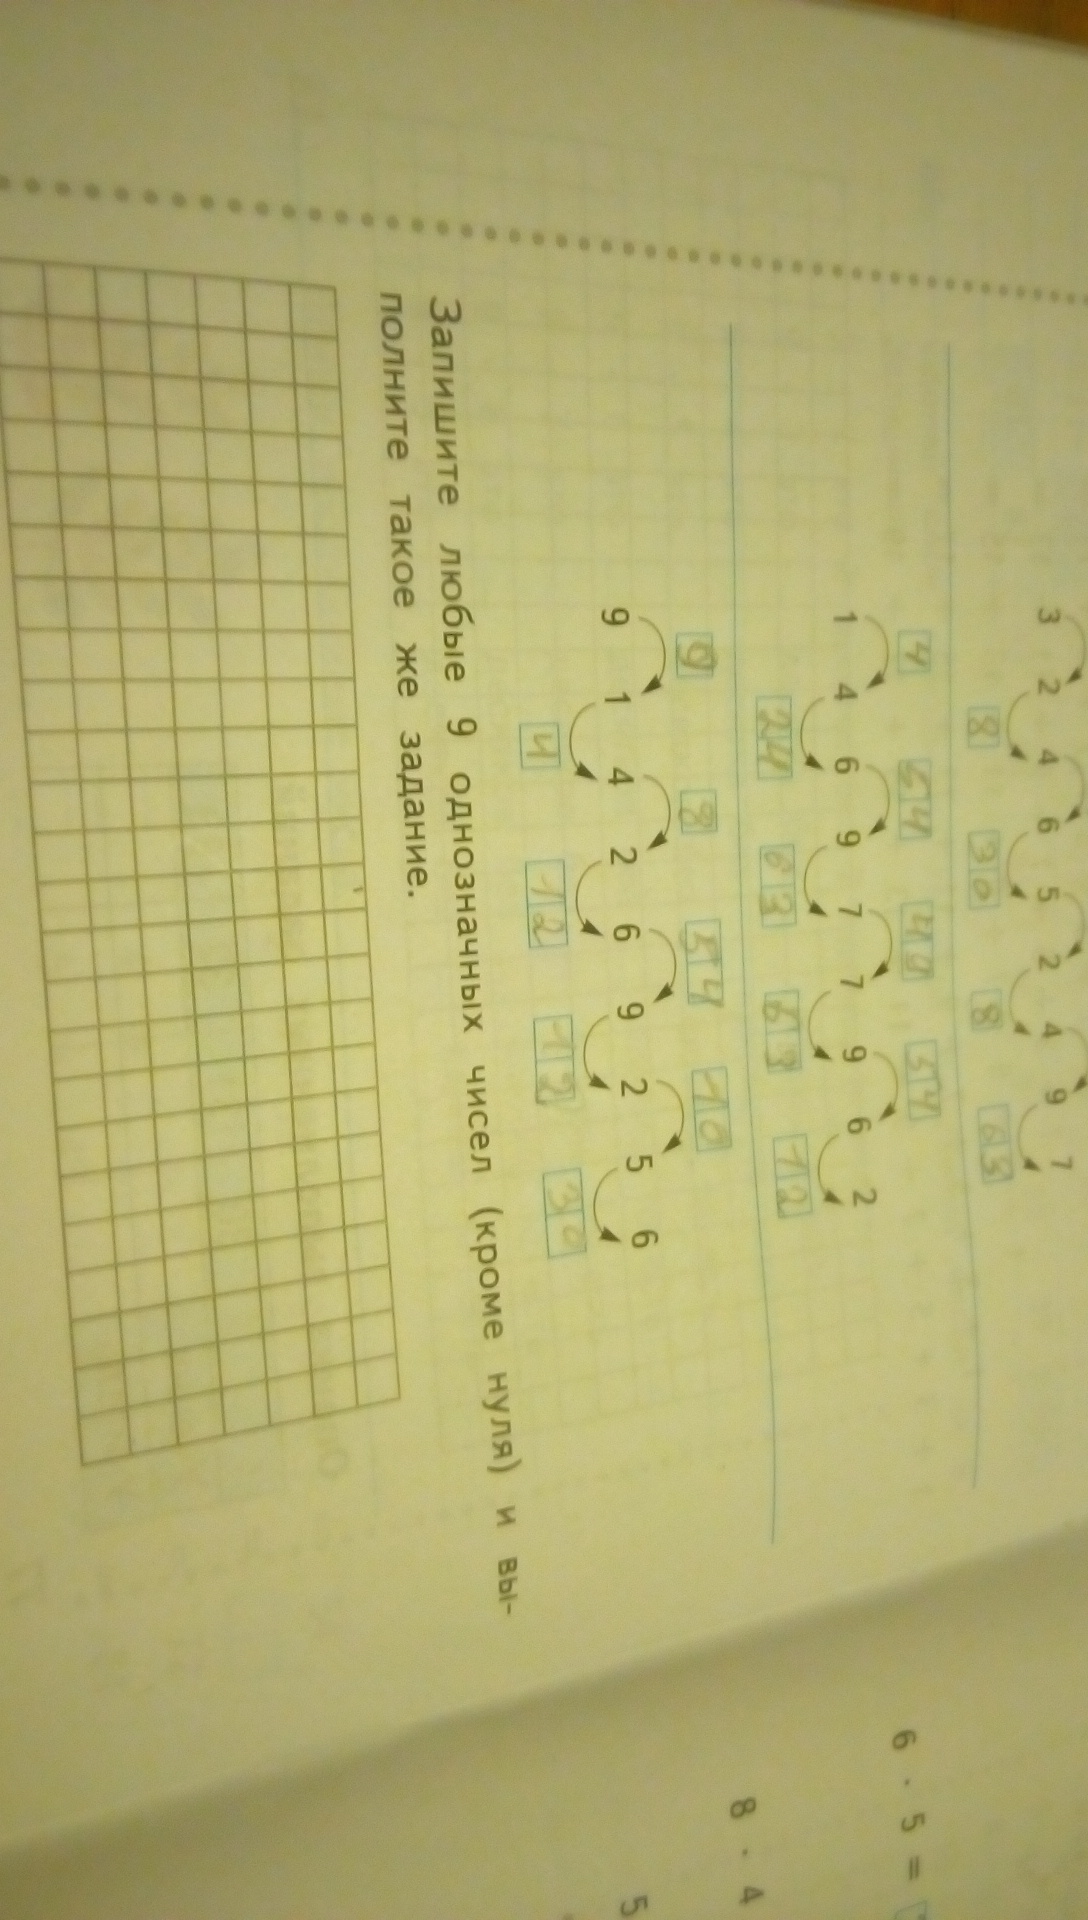 3 2 4 6 5 2 4 9 7
8 30 8 63
4 54 49 54
1 4 6 9 7 7 9 6 2
24 63 63 12
9 8 54 10
9 1 4 2 6 9 2 5 6
4 12 18 30
Запишите любые 9 однозначных чисел (кроме нуля) и вы-
полните такое же задание.
6 · 5 =
8 · 4
5